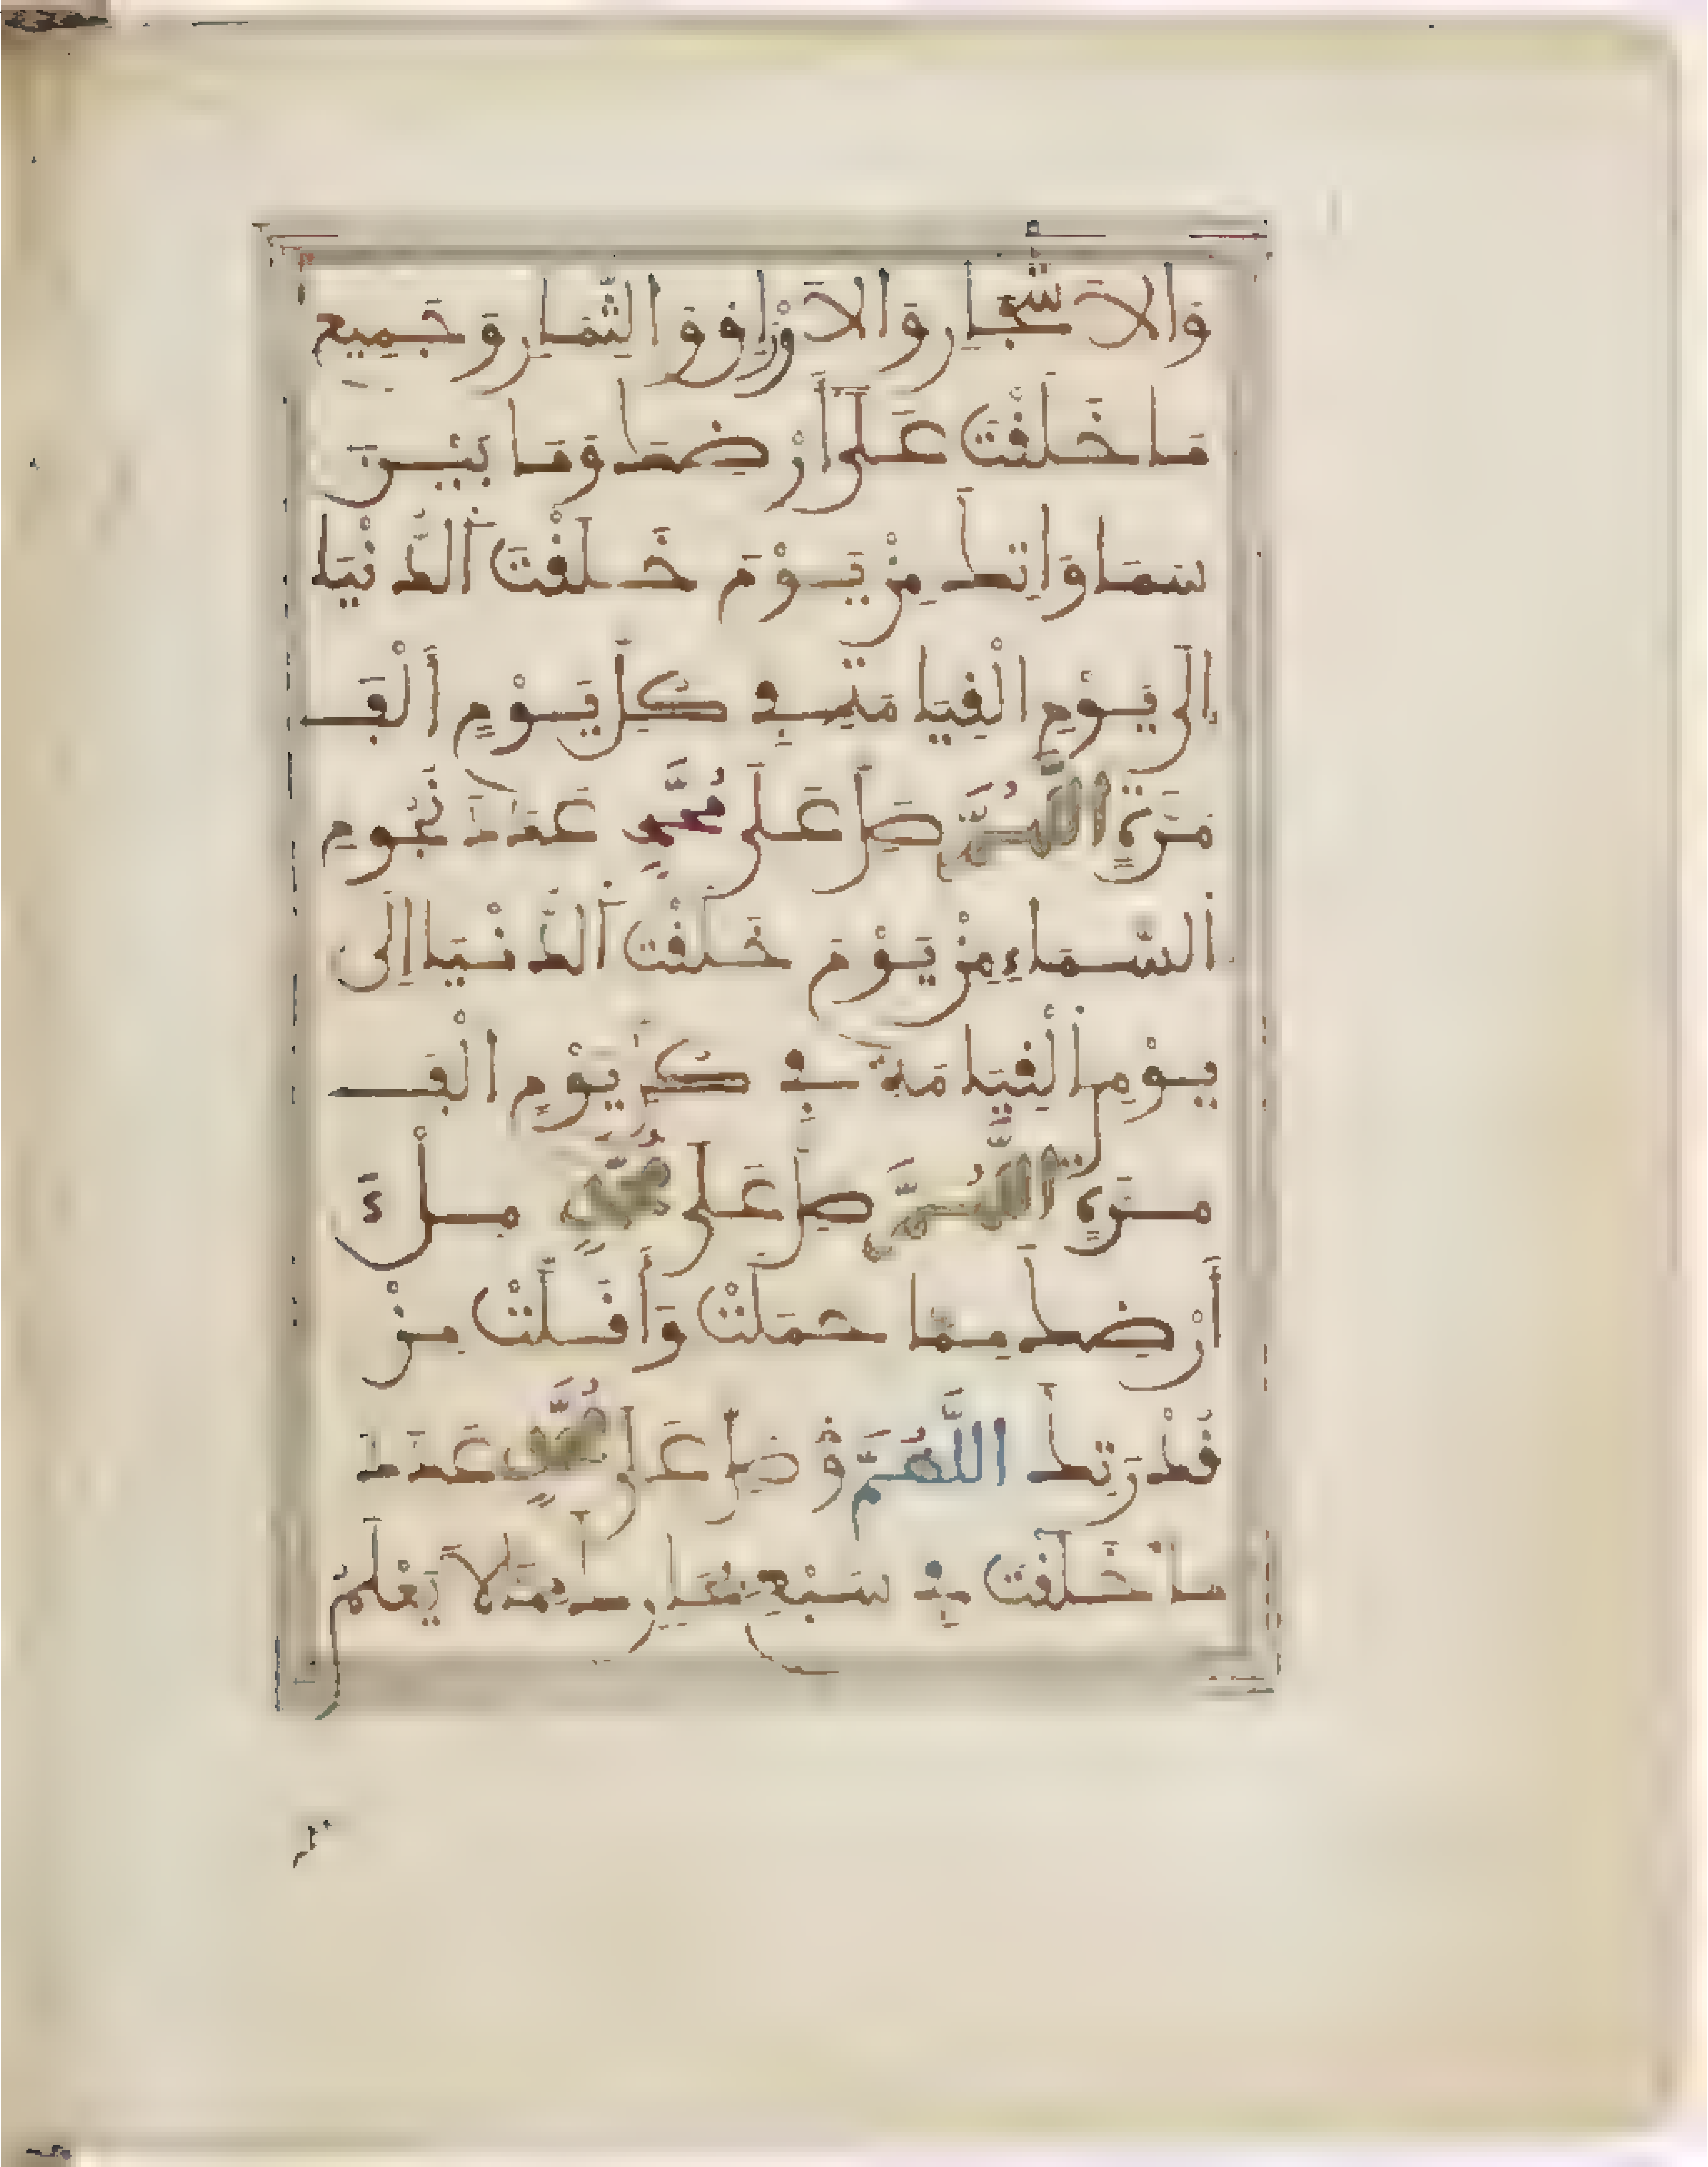 وَالاَشْجَارِ وَالاَوْرَاقِ وَالثِّمَارِ وَجَمِيعِ
مَا خَلَقْتَ عَلَى أَرْضِكَ وَمَا بَيْنَ
سَمَاوَاتِكَ مِنْ يَوْمَ خَلَقْتَ الدُّنْيَا
إِلَى يَوْمِ الْقِيَامَةِ فِي كُلِّ يَوْمٍ أَلْفَ
مَرَّةٍ اللَّهُمَّ صَلِّ عَلَى مُحَمَّدٍ عَدَدَ نُجُومِ
السَّمَاءِ مِنْ يَوْمَ خَلَقْتَ الدُّنْيَا إِلَى
يَوْمِ الْقِيَامَةِ فِي كُلِّ يَوْمٍ أَلْفَ
مَرَّةٍ اللَّهُمَّ صَلِّ عَلَى مُحَمَّدٍ مِلْءَ
أَرْضِكَ مِمَّا حَمَلَتْ وَأَقَلَّتْ مِنْ
قُدْرَتِكَ اللَّهُمَّ وَصَلِّ عَلَى مُحَمَّدٍ عَدَدَ
مَا خَلَقْتَ فِي سَبْعِ بِحَارِكَ مِمَّا لاَ يَعْلَمُ